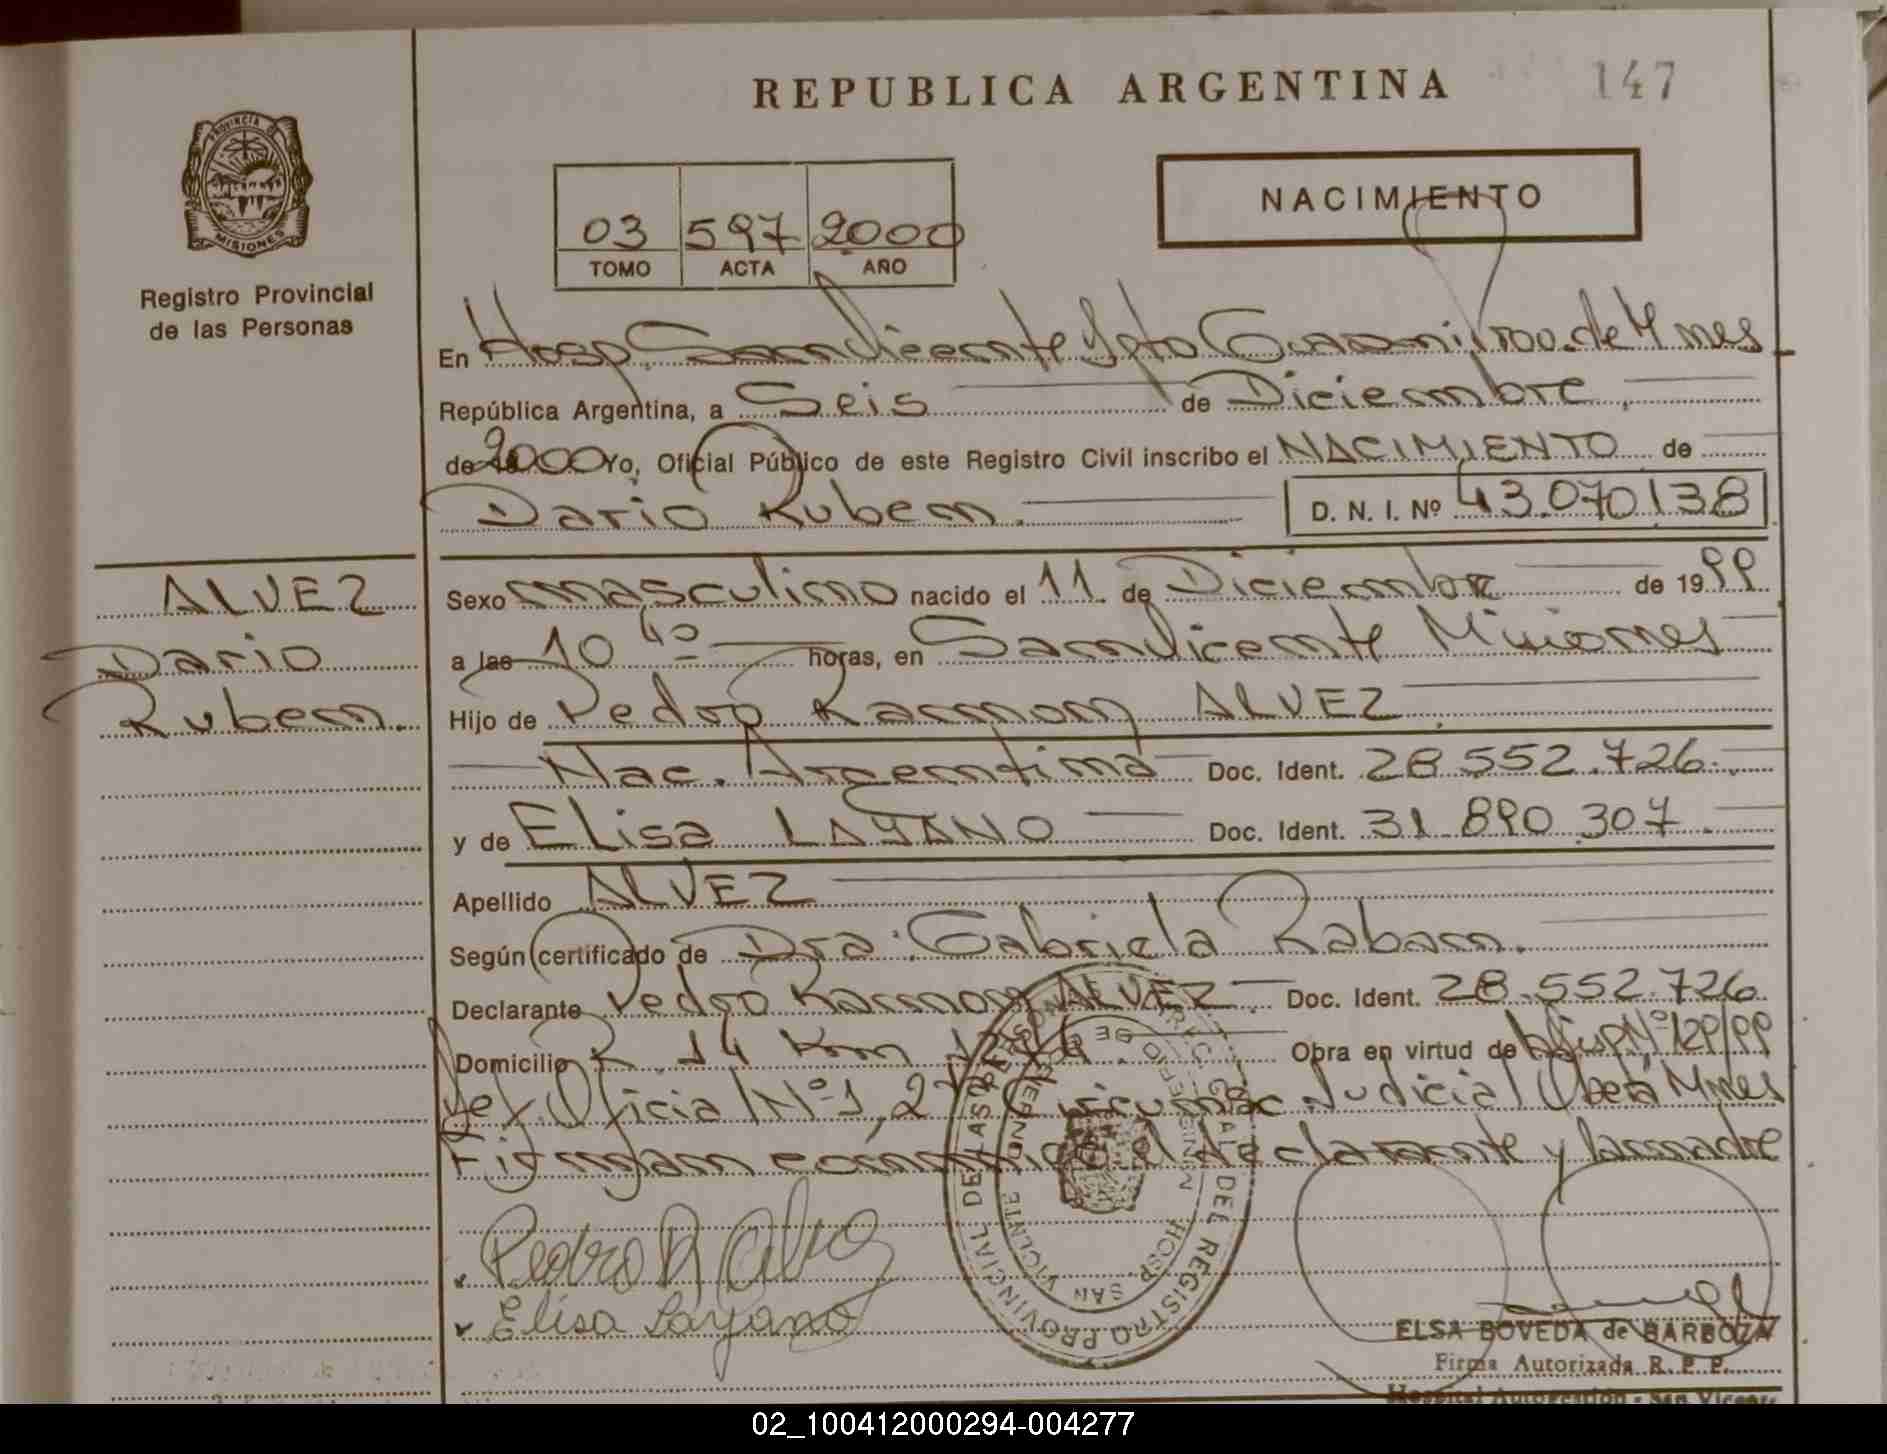 REPUBLICA ARGENTINA
147
PROVINCIA DE
MISIONES
Registro Provincial
de las Personas
03 597 2000
TOMO ACTA AÑO
NACIMIENTO
En Hosp. San Vicente Dpto Guarani, Prov. de Mnes
República Argentina, a Seis de Diciembre
de 2000 Yo, Oficial Público de este Registro Civil inscribo el NACIMIENTO de
Dario Ruben. D. N. I. Nº 43.070.138
ALVEZ
Dario
Ruben.
Sexo masculino nacido el 11 de Diciembre de 1999
a las 10 40 horas, en San Vicente Misiones
Hijo de Pedro Ramon ALVEZ
Nac. Argentina Doc. Ident. 28.552.726.
y de Elisa LAYANO Doc. Ident. 31.890.307
Apellido ALVEZ
Según certificado de Dra. Gabriela Raban.
Declarante Pedro Ramon ALVEZ Doc. Ident. 28.552.726
Domicilio R. 14 Km Obra en virtud de Nº 129/99
Oficia Nº 1, 2da Circunsc Judicial Oberá Mnes
Firman conmigo el declarante y la madre
Pedro R Alvez
Elisa Layano
REGISTRO PROVINCIAL DE LAS PERSONAS
HOSP. SAN VICENTE
ELSA BOVEDA de BARBOZA
Firma Autorizada R. P. P.
Hospital Autogestión - San Vicente
02_100412000294-004277